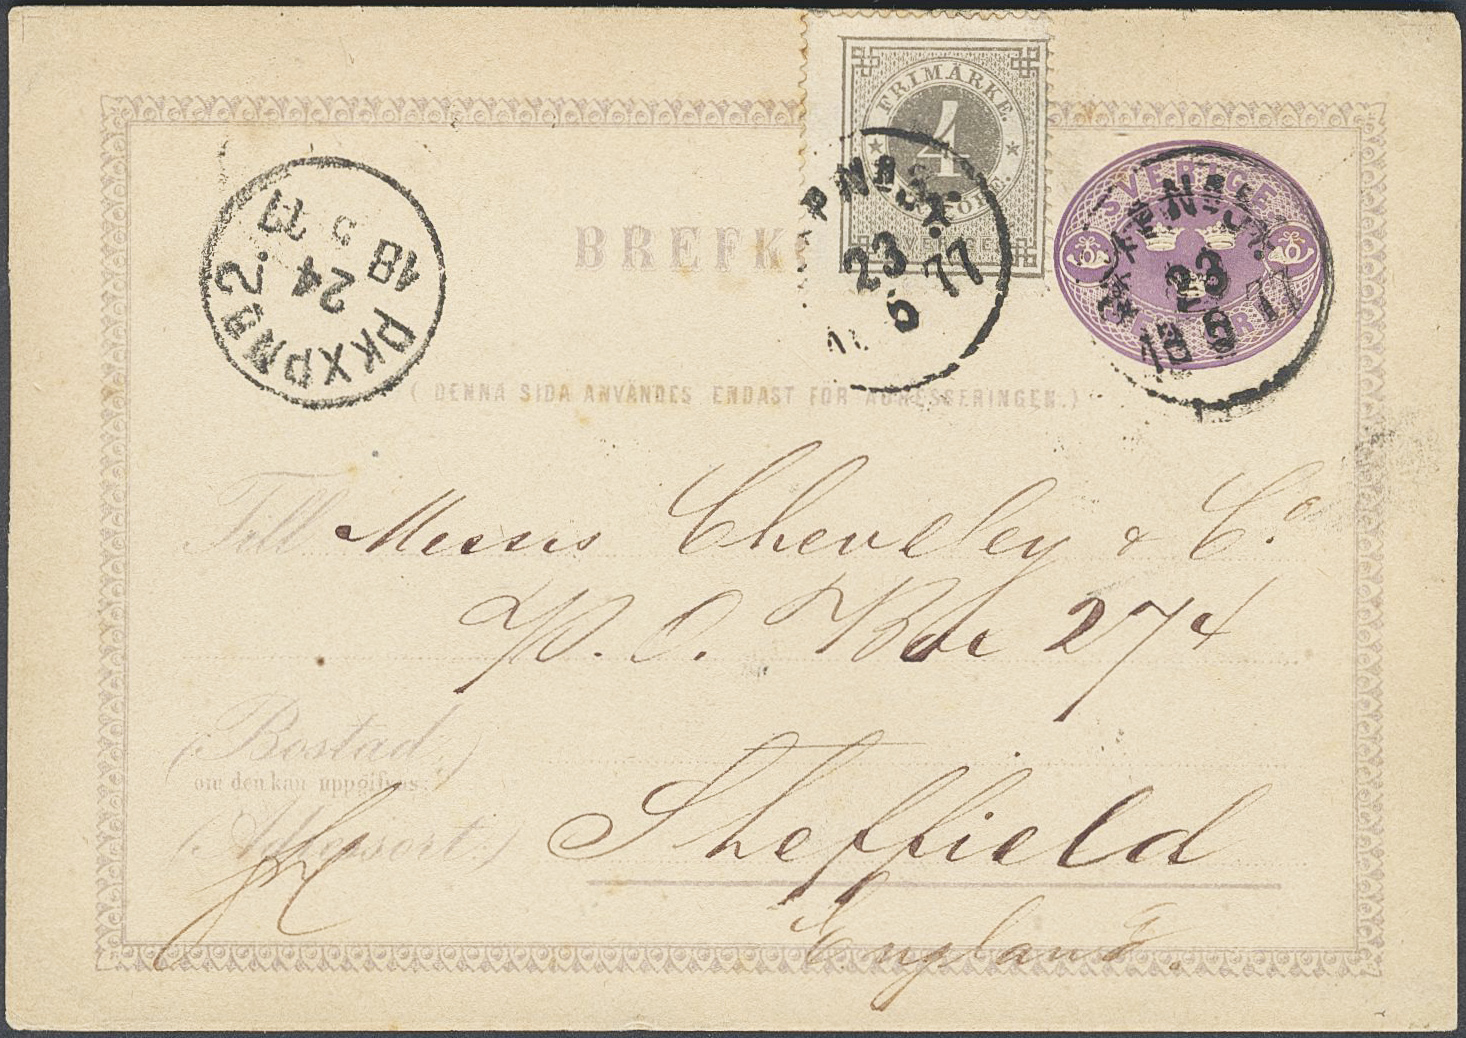 FRIMÄRKE.
4
SVERIGE
SVERIGE
23
6 77
23
18 6 77
PKXPN:2.
24
18 5 77
BREFK
( DENNA SIDA ANVÄNDES ENDAST FÖR ADRESSERINGEN.)
Till Messrs Cheveley & Co.
P. O. Box 274
(Bostad
om den kan uppgifvas:)
(Adressort)
Sheffield
England.